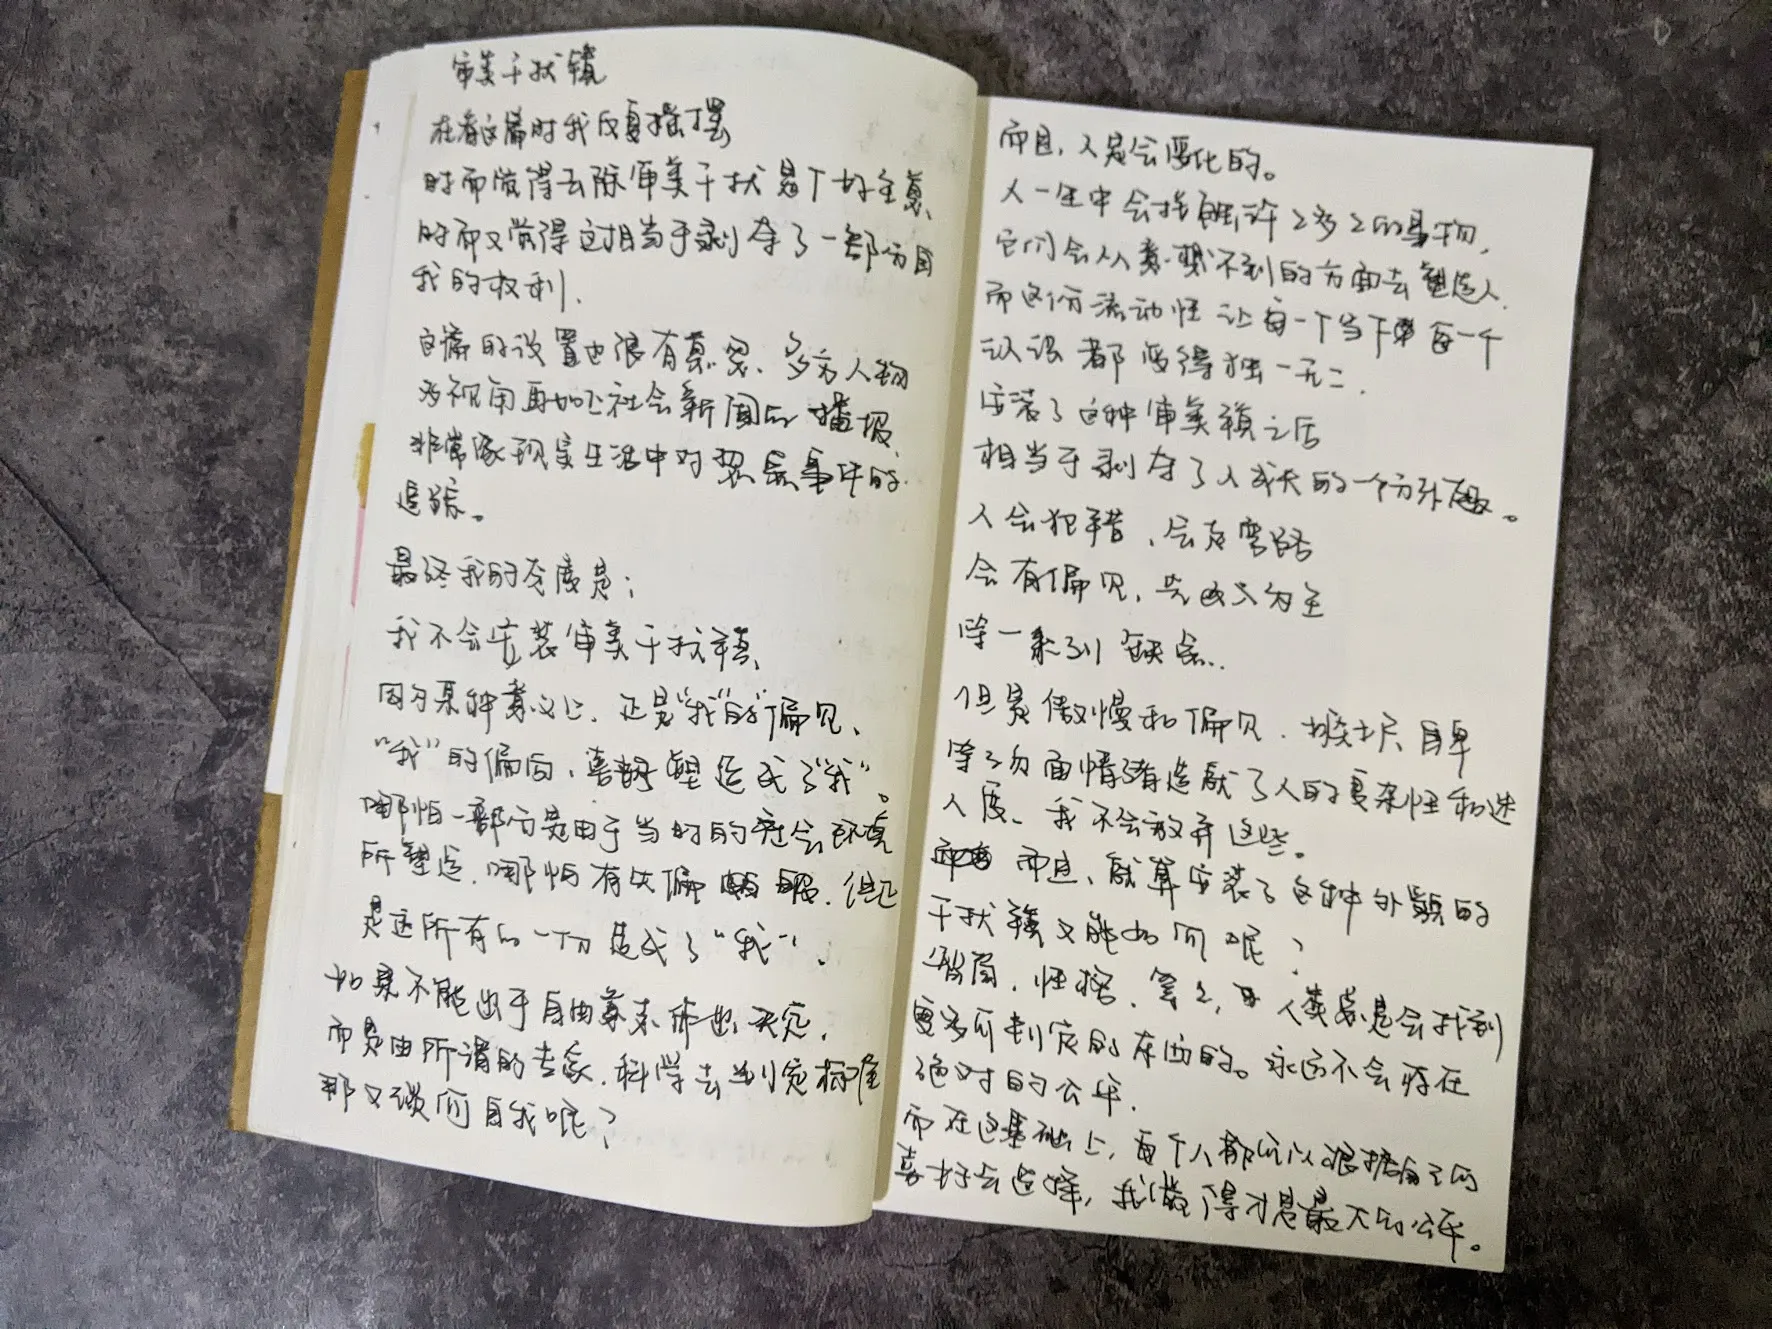 审美干扰镜
在看这篇时我反复摇摆
时而觉得去除审美干扰是个好主意、
时而又觉得这相当于剥夺了一部分自
我的权利.
这篇的设置也很有意思、多方人物
为视角再加上社会新闻的播报、
非常像现实生活中对热点事件的
追踪。
最终我的态度是:
我不会安装审美干扰镜、
因为某种意义上、正是“我”的“偏见、
“我”的偏向、喜好塑造成了“我”。
哪怕一部分是由于当时的社会环境
所塑造、哪怕有失偏颇、但正
是这所有的一切造成了“我”、
如果不能出于自由意志作出决定,
而是由所谓的专家、科学去判定标准
那又谈何自我呢?
而且,人是会变化的。
人一生中会接触许许多多的事物,
它们会从意想不到的方面去塑造人.
而这份流动性让每一个当下每一个
认识都变得独一无二.
安装了这种审美镜之后
相当于剥夺了人成长的一个方向。
人会犯错、会走弯路
会有偏见、先入为主
等一系列缺点..
但是傲慢和偏见、嫉妒自卑
等等负面情绪造就了人的复杂性和迷
人度、我不会放弃这些。
而且、就算安装了这种外貌的
干扰镜又能如何呢?
智商、性格、等等,人类总是会找到
更多可判定的东西的。永远不会存在
绝对的公平.
而在这基础上,每个人都可以根据自己的
喜好去选择,我觉得才是最大的公平。